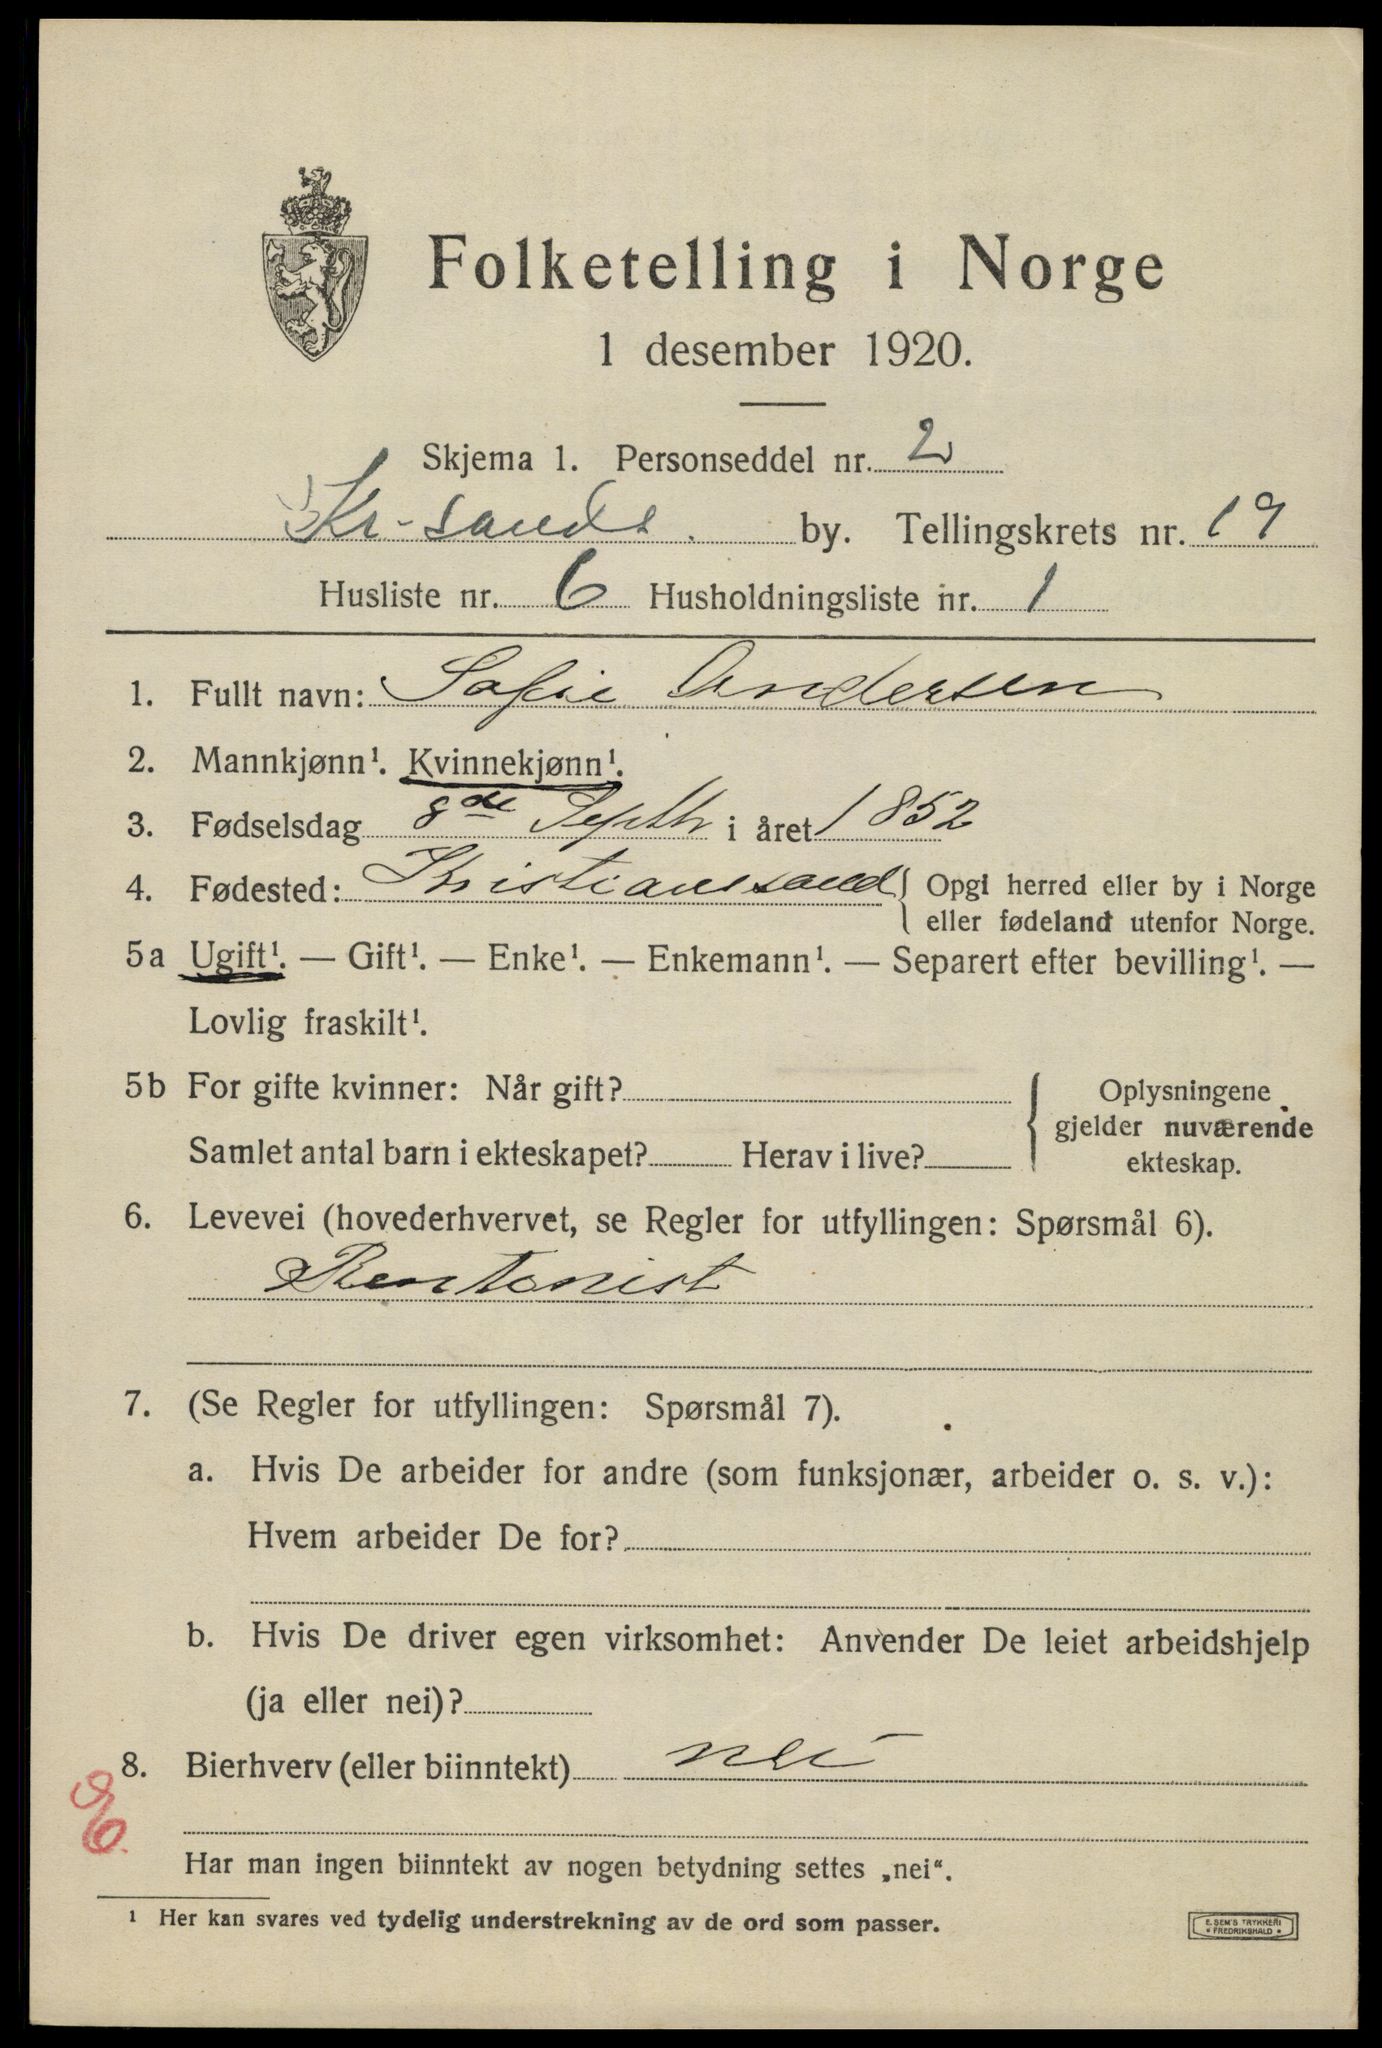 Folketelling i Norge
1 desember 1920.
Skjema 1. Personseddel nr. 2
Kr-sands by. Tellingskrets nr. 19
Husliste nr. 6 Husholdningsliste nr. 1
1. Fullt navn: Sofie Andersen
2. Mannkjønn¹. Kvinnekjønn¹.
3. Fødselsdag 8de Septbr i året 1852
4. Fødested: Kristianssand { Opgi herred eller by i Norge
eller fødeland utenfor Norge.
5a Ugift¹. — Gift¹. — Enke¹. — Enkemann¹. — Separert efter bevilling¹. —
Lovlig fraskilt¹.
5b For gifte kvinner: Når gift? { Oplysningene
gjelder nuværende
ekteskap.
Samlet antal barn i ekteskapet? Herav i live?
6. Levevei (hovederhvervet, se Regler for utfyllingen: Spørsmål 6).
Rentenist
7. (Se Regler for utfyllingen: Spørsmål 7).
a. Hvis De arbeider for andre (som funksjonær, arbeider o. s. v.):
Hvem arbeider De for?
b. Hvis De driver egen virksomhet: Anvender De leiet arbeidshjelp
(ja eller nei)?
8. Bierhverv (eller biinntekt) nei
Har man ingen biinntekt av nogen betydning settes „nei“.
¹ Her kan svares ved tydelig understrekning av de ord som passer.
E. SEM'S TRYKKERI
FREDRIKSHALD